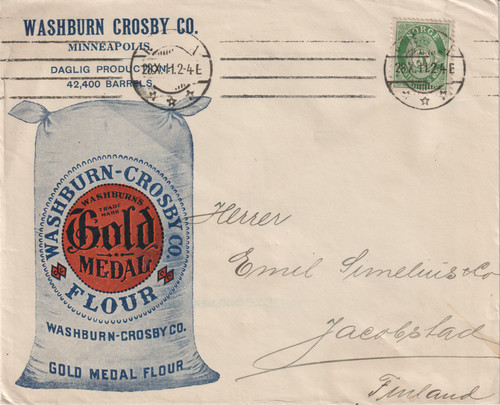 WASHBURN CROSBY CO.
MINNEAPOLIS.
DAGLIG PRODUCTION
42,400 BARRELS.
28X.11.2-4E
NORGE
28X.11.2-4E
WASHBURN-CROSBY CO.
WASHBURN'S
TRADE
MARK
Gold
MEDAL
FLOUR
WASHBURN-CROSBY CO.
GOLD MEDAL FLOUR
Herrer
Emil Simelius & Co
Jacobstad
Finland